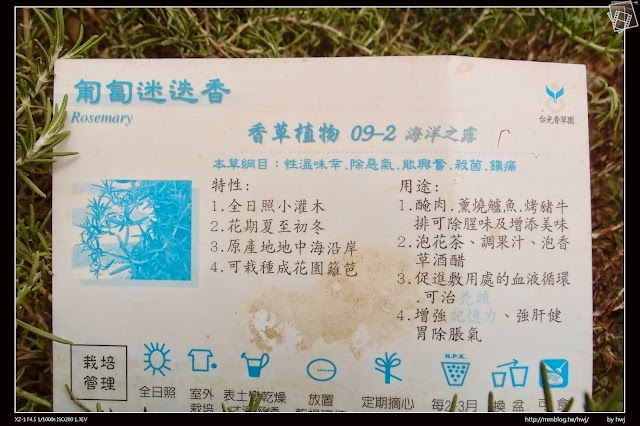 匍匐迷迭香
Rosemary
台光香草園
香草植物 09-2 海洋之露
本草綱目：性溫味辛.除惡氣.能興奮.殺菌.鎮痛
特性：
1.全日照小灌木
2.花期夏至初冬
3.原產地地中海沿岸
4.可栽種成花園籬笆
用途：
1.醃肉.薰燒鱸魚.烤豬牛
排可除腥味及增添美味
2.泡花茶、調果汁、泡香
草酒醋
3.促進敷用處的血液循環
.可治禿頭
4.增強記憶力、強肝健
胃除脹氣
栽培
管理
全日照
室外
栽培
表土變乾燥
放置
定期摘心
N.P.K.
每2-3月
換盆
可食
XZ-1 F4.5 1/1000s ISO200 1.3EV
http://mmblog.tw/hwj/ by hwj